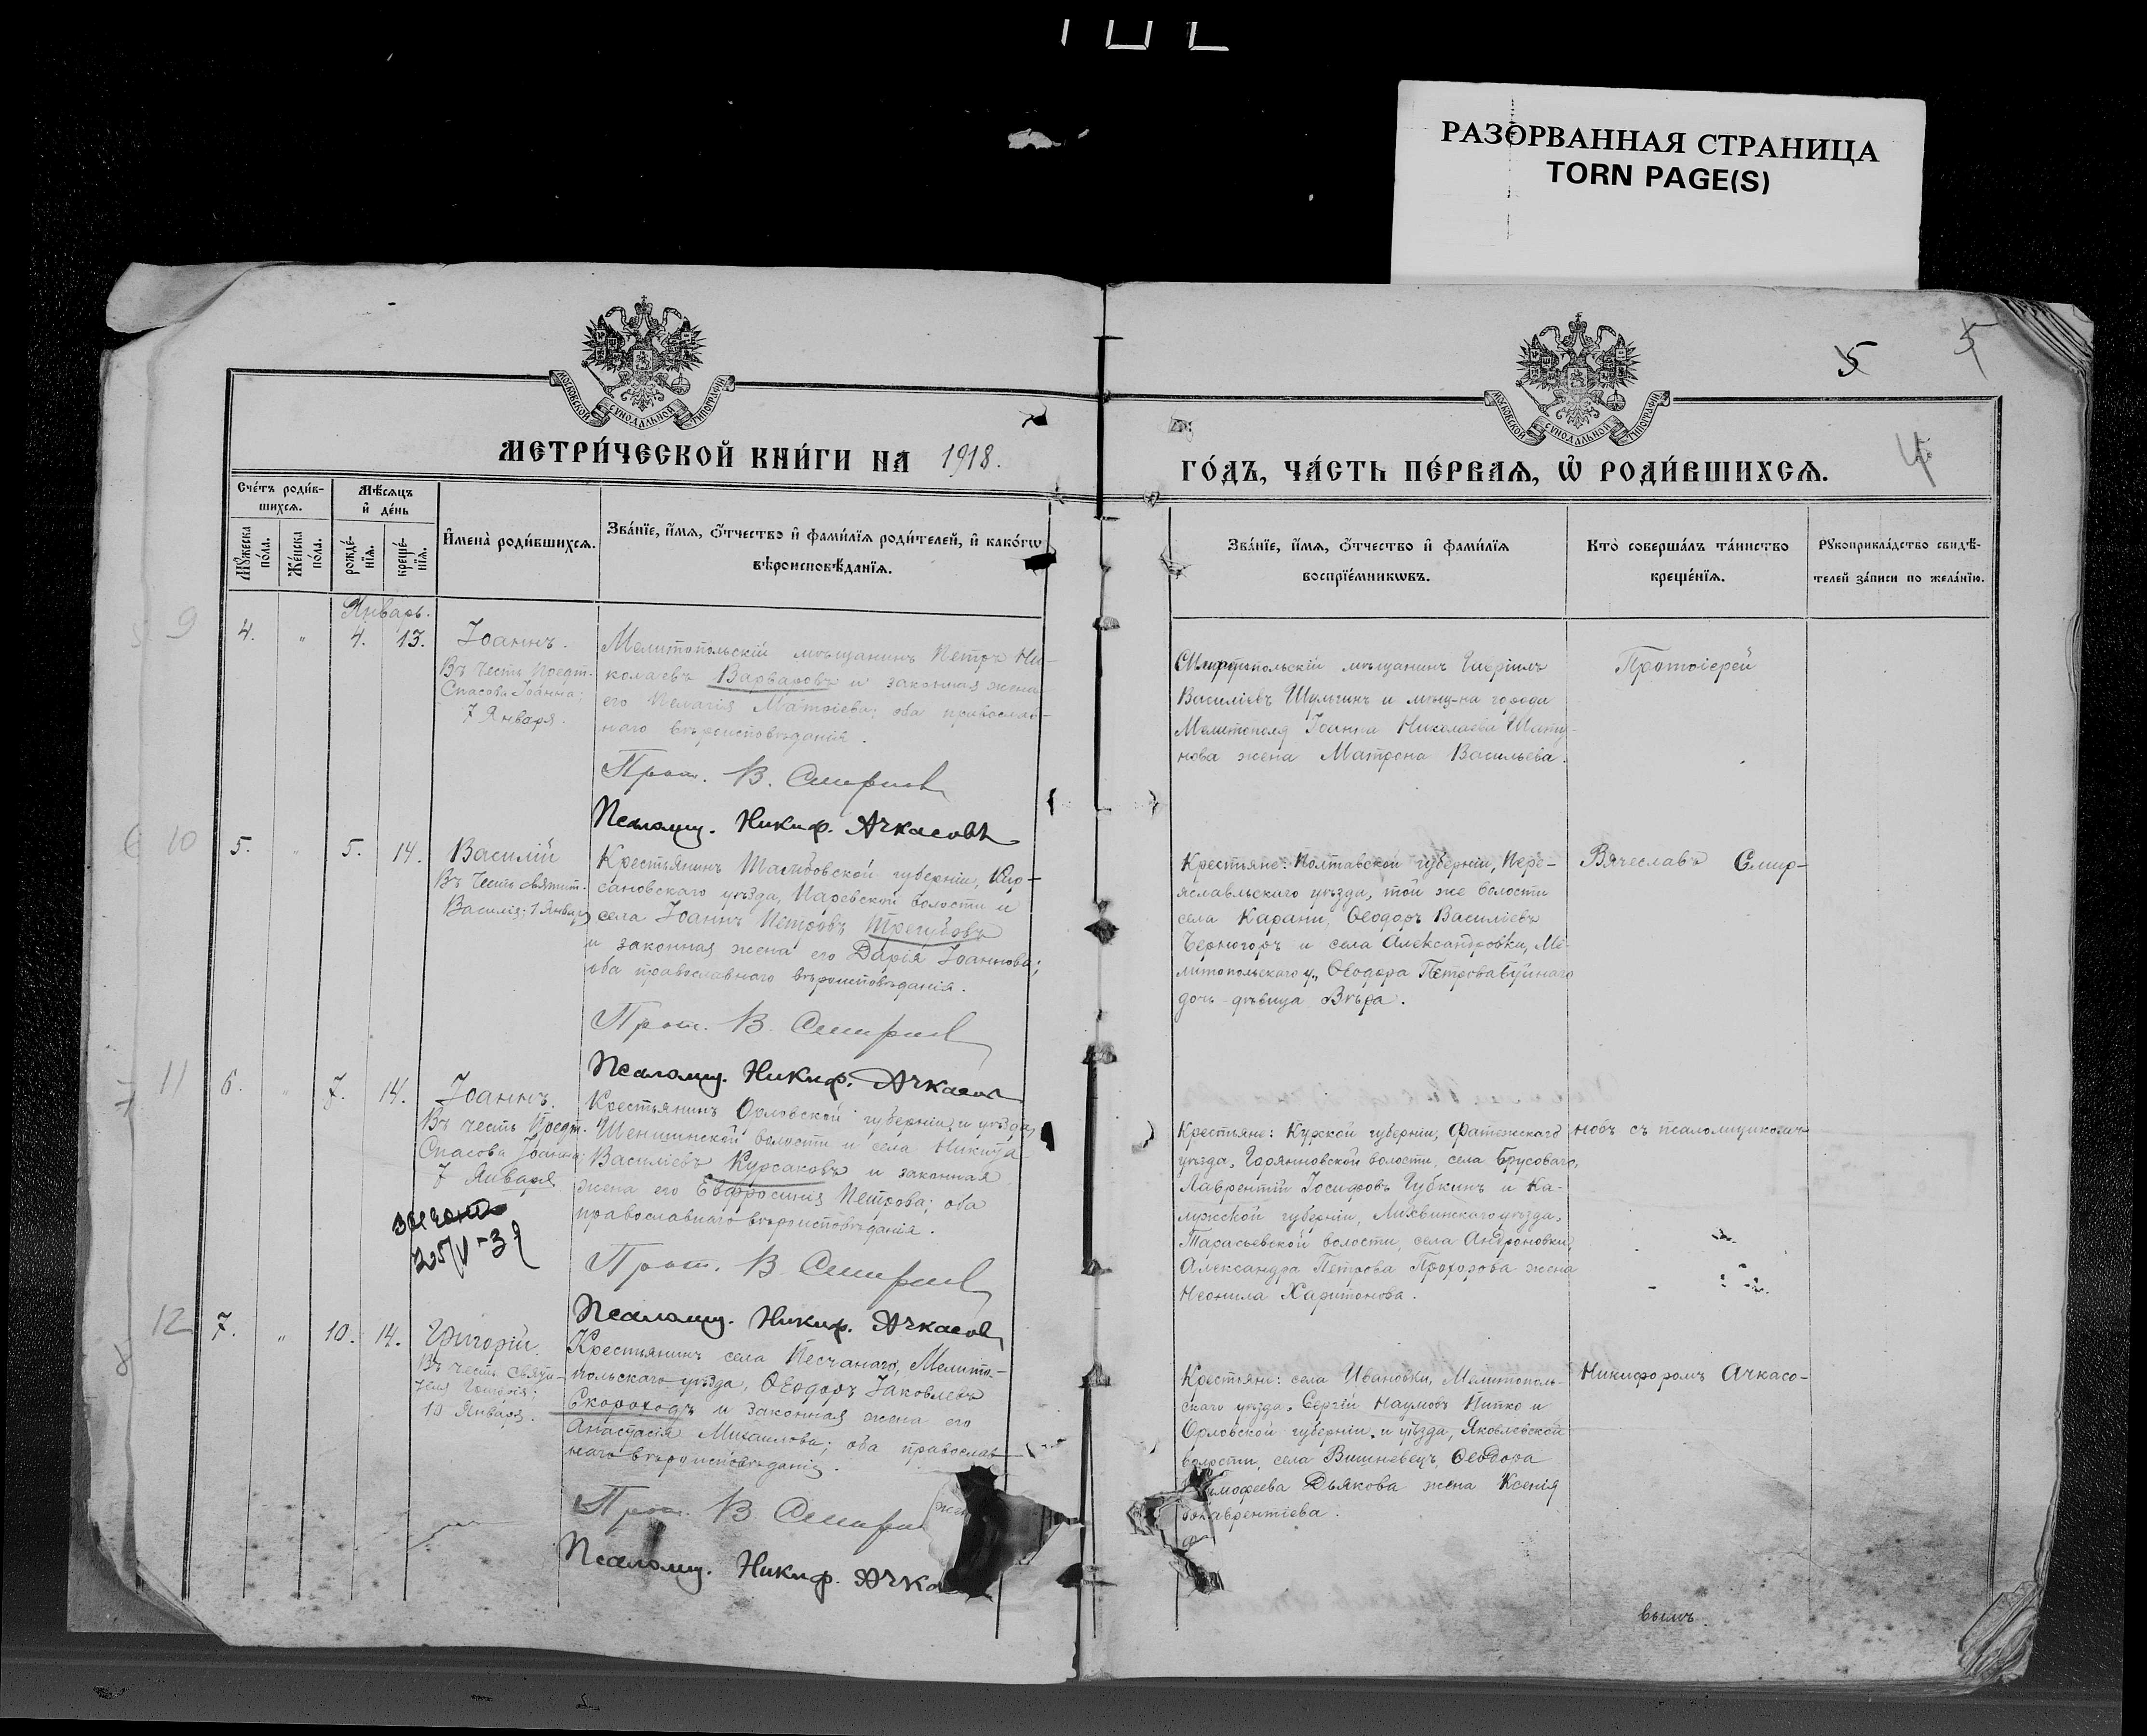 РАЗОРВАННАЯ СТРАНИЦА
TORN PAGE(S)
5 5
МОСКОВСКОЙ СѴНОДАЛЬНОЙ ТИПОГРАФІИ
МОСКОВСКОЙ СѴНОДАЛЬНОЙ ТИПОГРАФІИ
МЕТРИ́ЧЕСКОЙ КНИ́ГИ НА 1918.
ГО́ДЪ, ЧА́СТЬ ПЕ́РВАѦ, Ѡ РОДИ́ВШИХСѦ.
4
Сче́тъ роди́в-
шихсѧ.
Мꙋжеска по́ла.
Же́нска по́ла.
Мѣ́сѧцъ и҆ де́нь
рожде́-нїѧ.
креще́-нїѧ.
И҆мена̀ роди́вшихсѧ.
Зва́нїе, и҆́мѧ, ѻ҆́тчество и҆ фами́лїѧ роди́телей, и҆ како́гѡ
вѣроисповѣ́данїѧ.
Зва́нїе, и҆́мѧ, ѻ҆́тчество и҆ фами́лїѧ
воспрїе́мникѡвъ.
Кто̀ соверша́лъ та́инство
креще́нїѧ.
Рꙋкоприкла́дство свидѣ́-
телей за́писи по жела́нїю.
Январь.
9 4. " 4. 13. Іоаннъ.
Въ честь Предт.
Спасова Іоанна;
7 Января.
Мелитопольскій мѣщанинъ Петръ Ни-
колаевъ Варваровъ и законная жена
его Пелагія Матѳіева; оба православ-
наго вѣроисповѣданія.
Прот. В. Смирнов
Псаломщ. Никиф. Ачкасовъ
Мелитопольскій мѣщанинъ
Василіевъ Шульгинъ и мѣщ-на города
Мелитополя Іоанна Николаева
нова жена Матрона Васильева.
Протоіерей
6 10 5. " 5. 14. Василій
Въ честь святит.
Василія; 1 Января
Крестьянинъ Тамбовской губерніи, Кир-
сановскаго уѣзда, Царевской волости и
села Іоаннъ Петровъ Трегубовъ
и законная жена его Дарія Іоаннова;
оба православнаго вѣроисповѣданія.
Прот. В. Смирнов
Псаломщ. Никиф. Ачкасов
Крестьяне: Полтавской губерніи, Пере-
яславльскаго уѣзда, той же волости
села Карани, Ѳеодоръ Василіевъ
Черногоръ и села Александровки, Ме-
литопольскаго у., Ѳеодора Петрова
дочь - дѣвица Вѣра.
Вячеславъ Смир-
7 11 6. " 7. 14. Іоаннъ.
Въ честь Предт.
Спасова Іоанна;
7 Января
Крестьянинъ Орловской губерніи и уѣзда,
Шеншинской волости и села Никита
Василіевъ Курсаковъ и законная
жена его Евфросинія Петрова; оба
православнаго вѣроисповѣданія.
Прот. В. Смирнов
Псаломщ. Никиф. Ачкасов
Крестьяне: Курской губерніи, Фатежскаго
уѣзда, волости, села Брусоваго,
Лаврентій Іосифовъ Губкинъ и Ка-
лужской губерніи, Лихвинскаго уѣзда,
Тарасьевской волости, села Андроновки,
Александра Петрова Прохорова жена
Неонила Харитонова.
новъ съ псаломщикомъ
8 12 7. " 10. 14. Григорій.
Въ честь святи-
теля Григорія;
10 Января.
Крестьянинъ села Песчанаго, Мелито-
польскаго уѣзда, Ѳеодоръ Іаковлевъ
Скороходъ и законная жена его
Анастасія Михаилова; оба православ-
наго вѣроисповѣданія.
Прот. В. Смирн
Псаломщ. Никиф. Ачка
Крестьяне: села Ивановки, Мелитополь-
скаго уѣзда, Сергій Наумовъ и
Орловской губерніи и уѣзда, Яковлевской
волости, села Вишневецъ, Ѳеодора
Тимофеева Дьякова жена Ксенія
Лаврентіева.
Никифоромъ Ачкасо-
вымъ